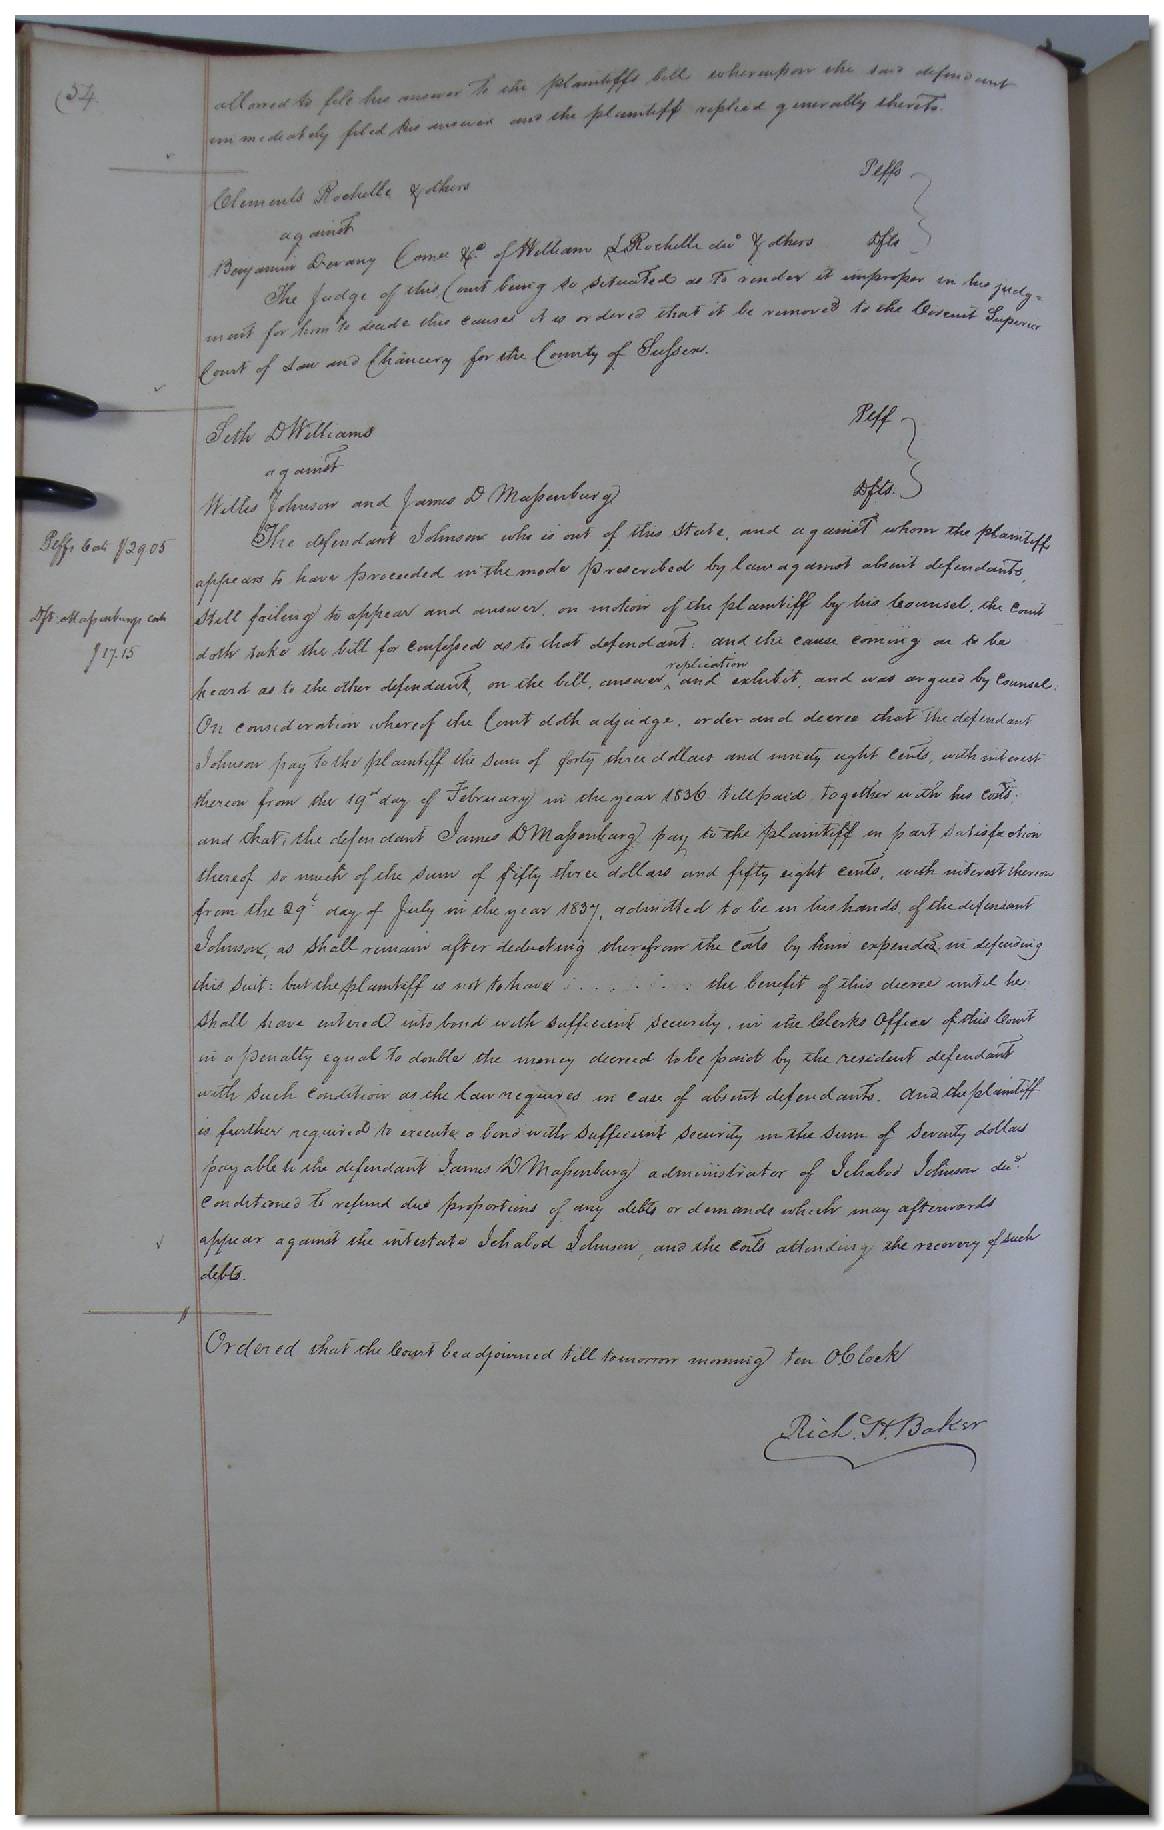 (54.
allowed to file his answer to the plaintiffs bill whereupon the said defendant
immediately filed his answer and the plaintiff replied generally thereto.
Clements Rochelle & others Peffs
against
Benjamin Devany Comee &c. of William L Rochelle decd & others Dfts
The Judge of this Court being so situated as to render it improper in his judg=
ment for him to decide this causes it is ordered that it be removed to the Circuit Superior
Court of Law and Chancery for the County of Sussex.
Seth D Williams Peff
against
Willis Johnson and James D Massenburg Dfts.
Peffs Costs $29.05
The defendant Johnson who is out of this State, and against whom the plaintiff
appears to have proceeded in the mode prescribed by law against absent defendants,
Dft Massenburgs costs
$17.15
still failing to appear and answer, on motion of the plaintiff by his Counsel, the Court
doth take the bill for confessed as to that defendant: and the cause coming on to be
heard as to the other defendant, on the bill, answer, replication and exhibit, and was argued by Counsel.
On consideration whereof the Court doth adjudge, order and decree that the defendant
Johnson pay to the plaintiff the sum of forty three dollars and ninety eight cents, with interest
thereon from the 19th day of February in the year 1836 till paid, together with his costs:
and that, the defendant James D Massenburg pay to the plaintiff in part satisfaction
thereof so much of the sum of fifty three dollars and fifty eight cents, with interest thereon
from the 29th day of July in the year 1837, admitted to be in his hands, of the defendant
Johnson, as shall remain after deducting therefrom the costs by him expended in defending
this suit: but the plaintiff is not to have . . . . . . . the benefit of this decree until he
shall have entered into bond with sufficient security, in the Clerks Office of this Court
in a penalty equal to double the money decreed to be paid by the resident defendant
with such condition as the law requires in case of absent defendants. And the plaintiff
is further required to execute a bond with sufficient security in the sum of seventy dollars
payable to the defendant James D Massenburg administrator of Ichabod Johnson decd.
conditioned to refund due proportions of any debts or demands which may afterwards
appear against the intestate Ichabod Johnson, and the costs attending the recovery of such
debts.
Ordered that the Court be adjourned till tomorrow morning ten OClock
Rich. H. Baker